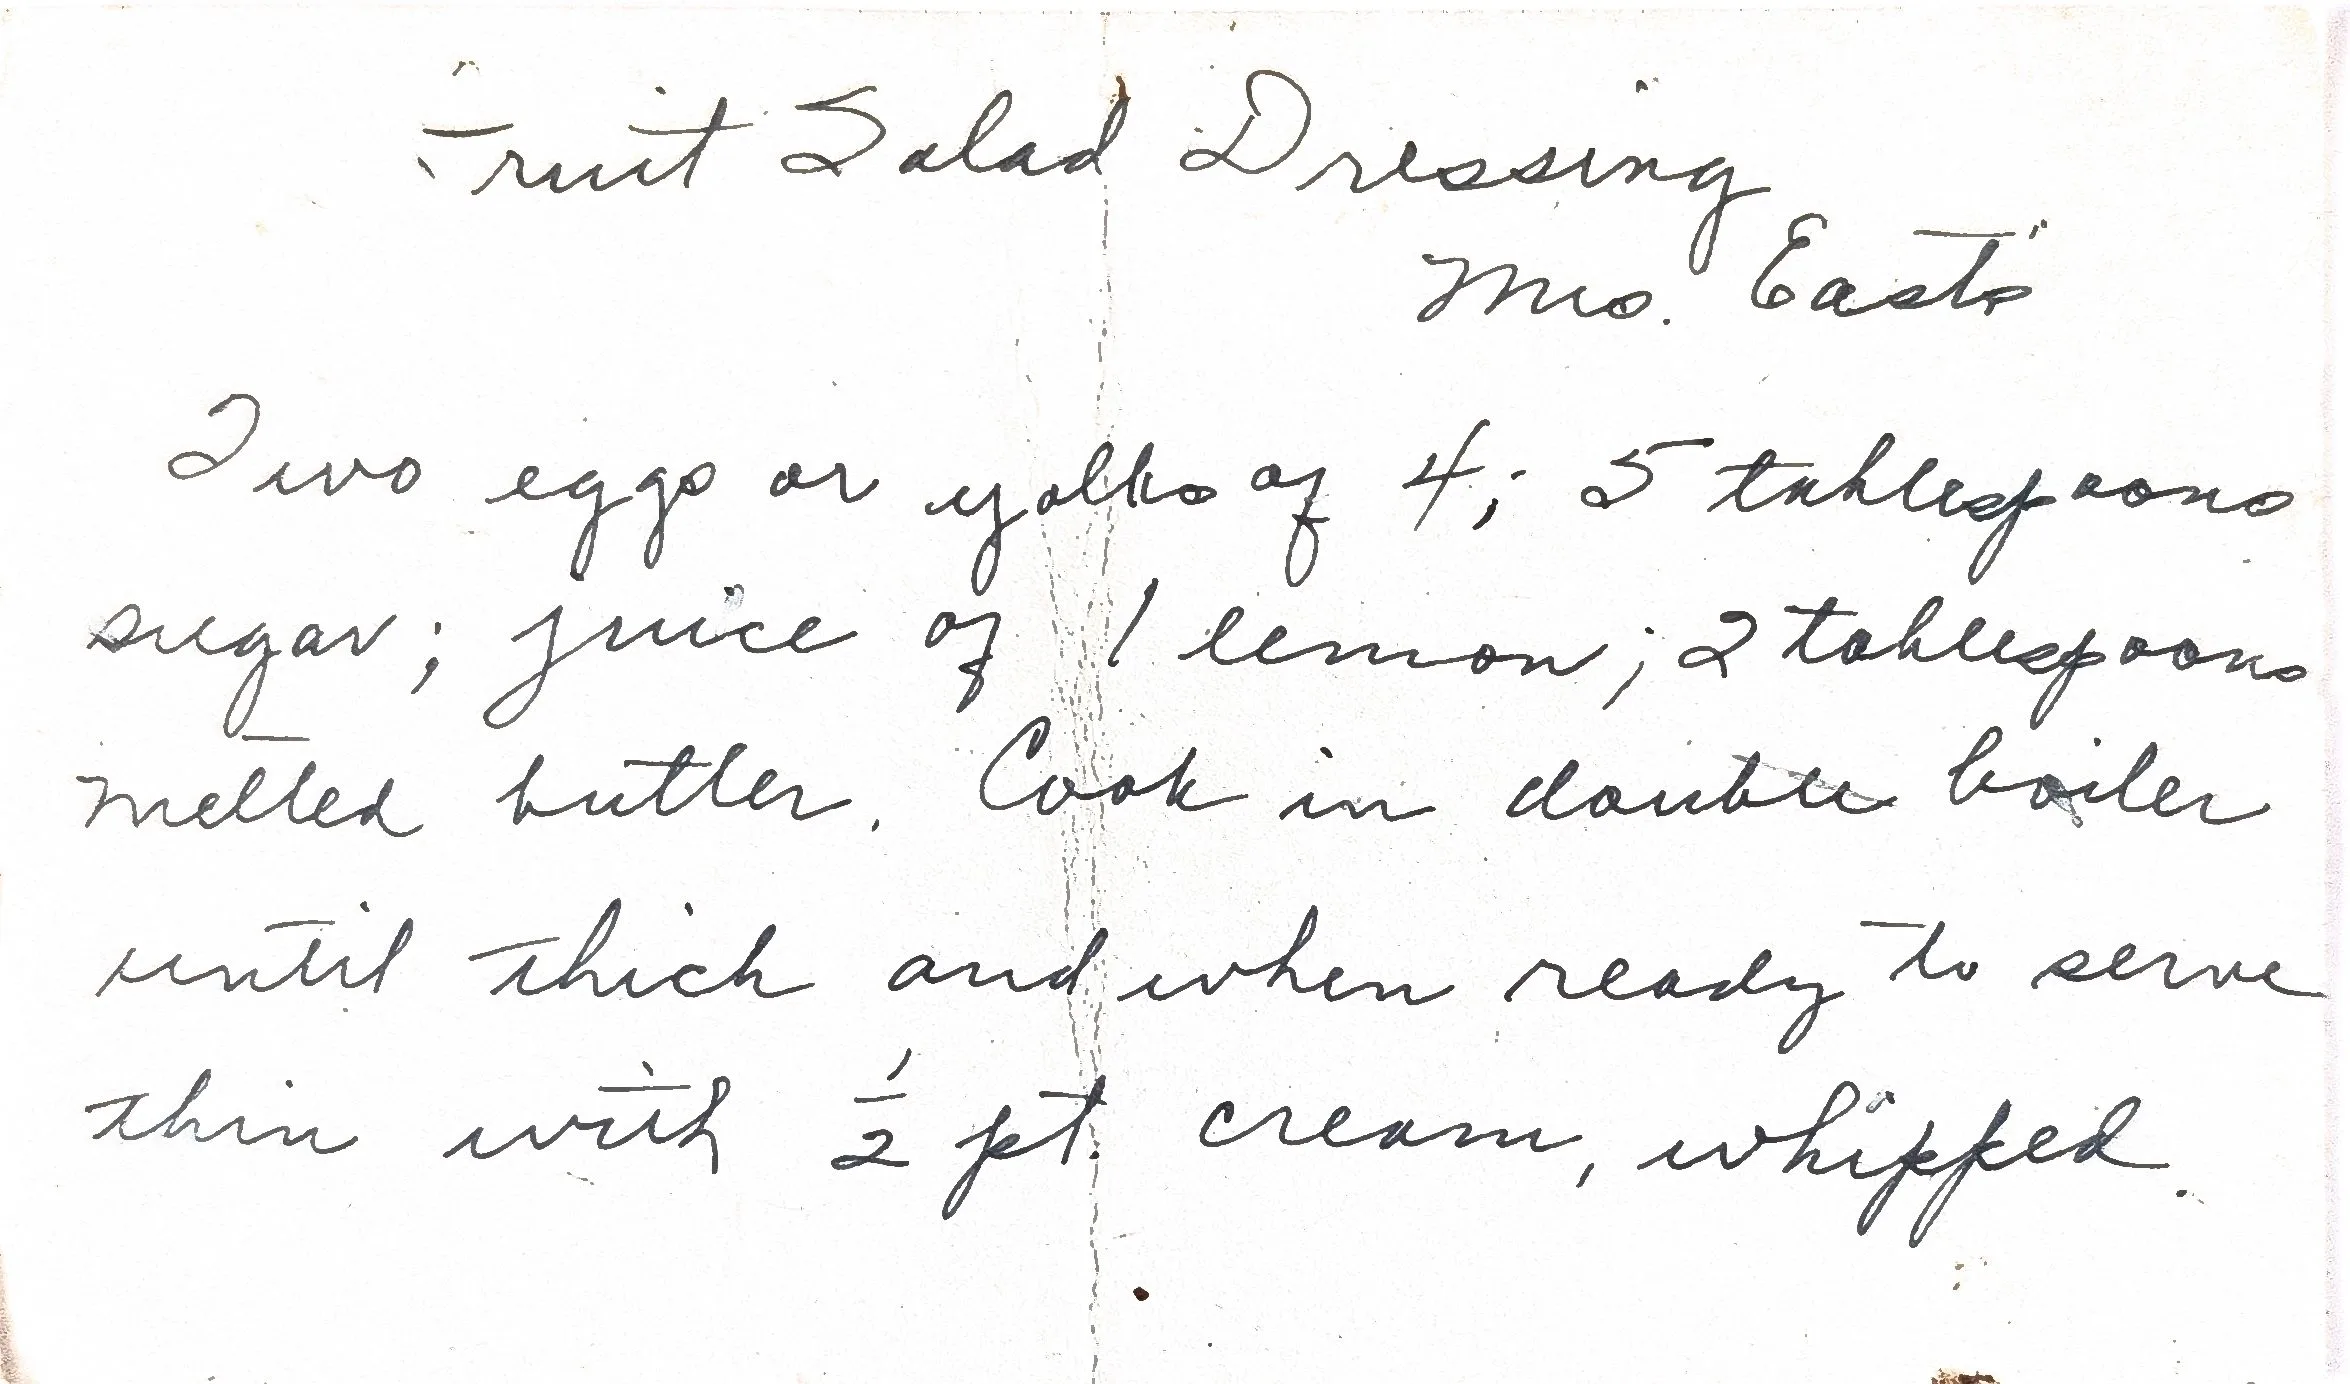 Fruit Salad Dressing
Mrs. East's
Two eggs or yolks of 4; 5 tablespoons
sugar; juice of 1 lemon; 2 tablespoons
melted butter. Cook in double boiler
until thick and when ready to serve
thin with 1/2 pt. cream, whipped.